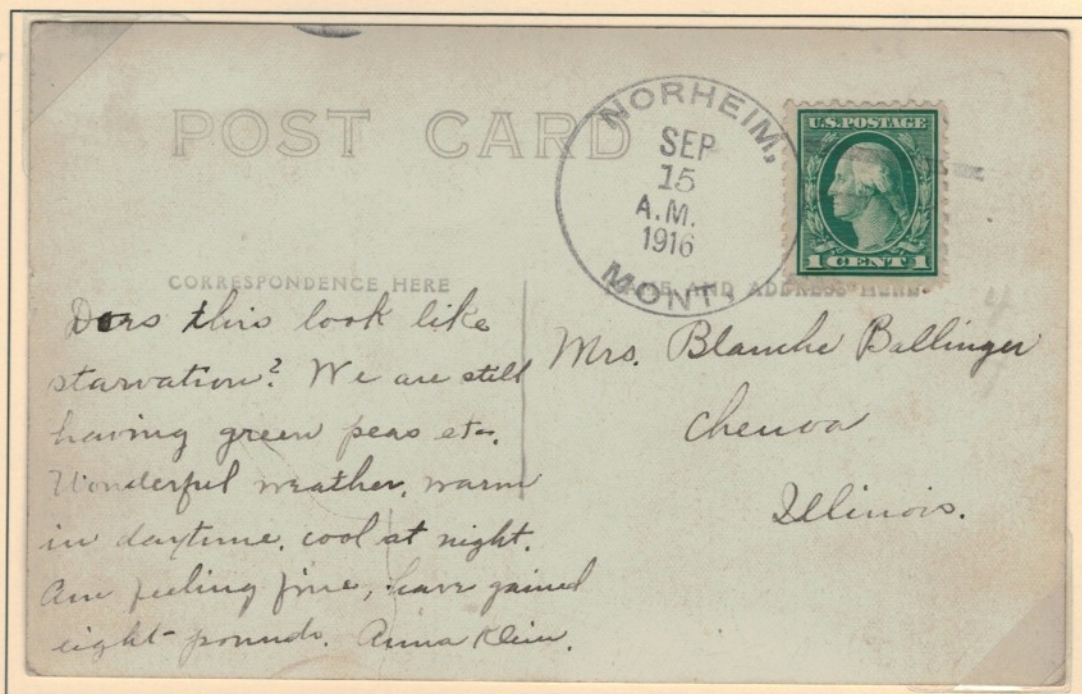 POST CARD
NORHEIM,
SEP
15
A.M.
1916
MONT.
U.S. POSTAGE
1 CENT 1
CORRESPONDENCE HERE
NAME AND ADDRESS HERE
Does this look like
starvation? We are still
having green peas etc.
Wonderful weather, warm
in daytime, cool at night.
Am feeling fine, have gained
eight pounds. Anna Klein.
Mrs. Blanche Ballinger
Chenoa
Illinois.